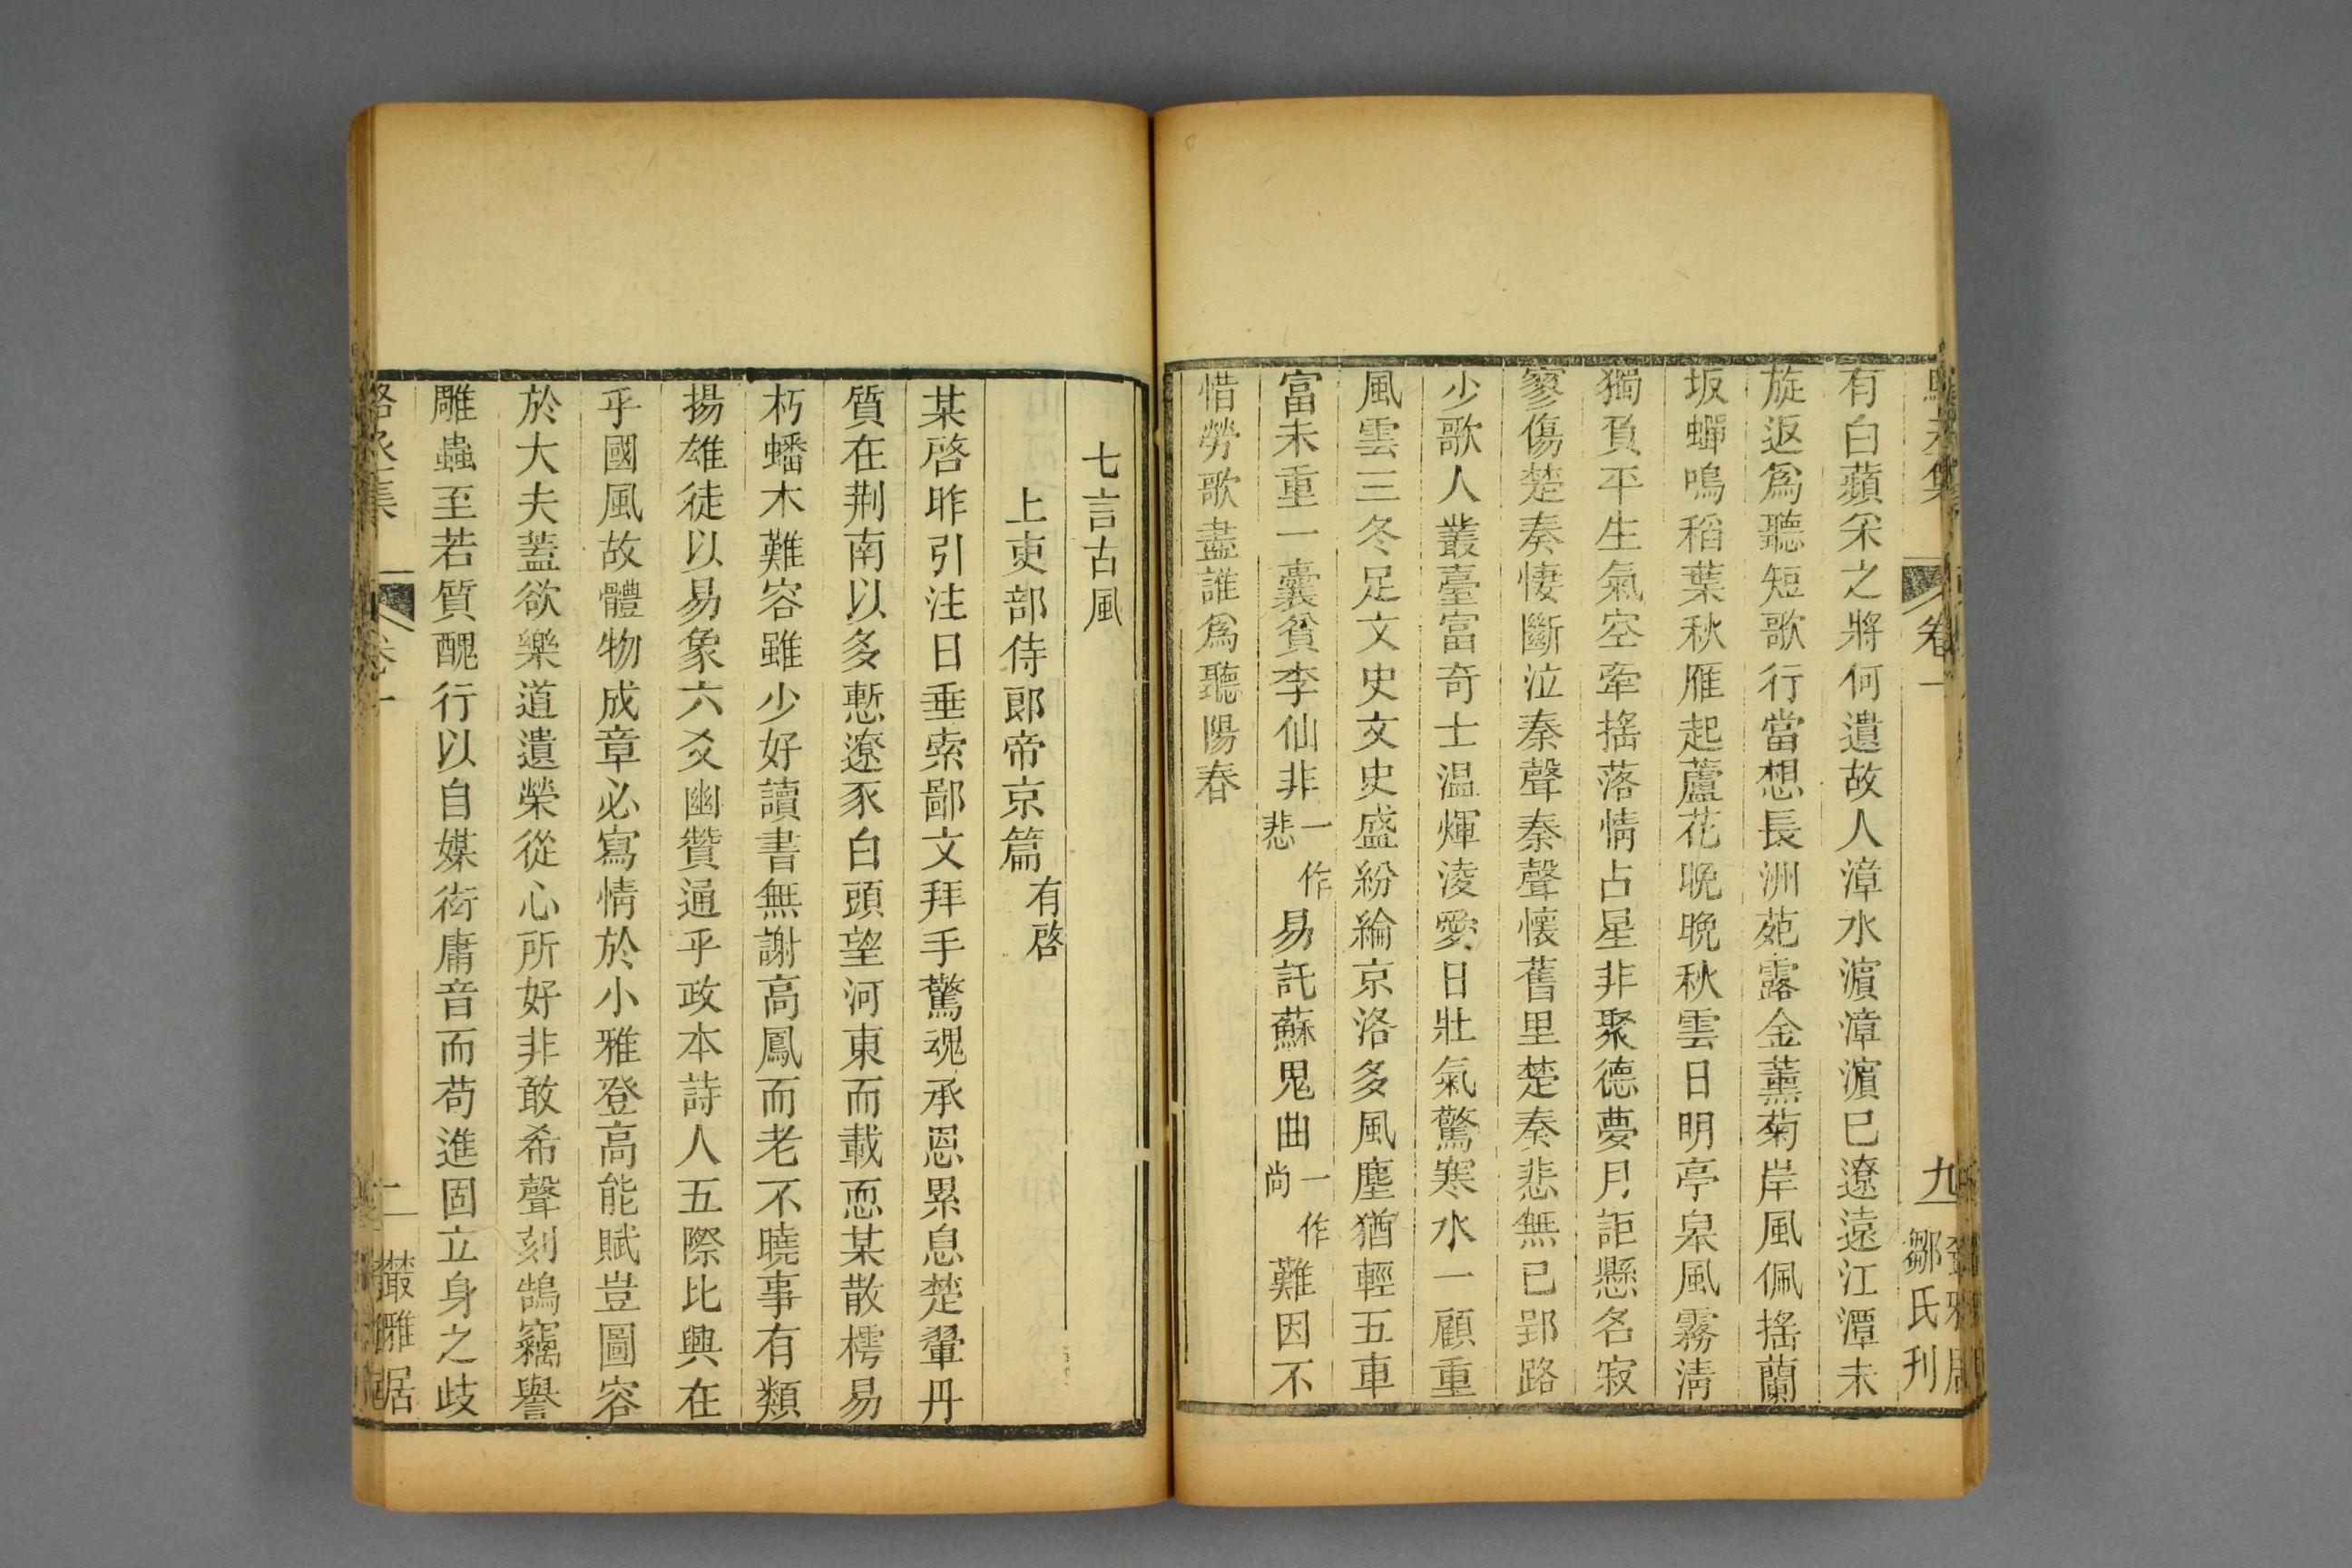 卷一
九
鄒氏刊
有白蘋采之將何遺故人漳水濵漳濵巳遼遠江潭未
旋返爲聽短歌行當想長洲苑露金薰菊岸風佩搖蘭
坂蟬鳴稻葉秋雁起蘆花晚晚秋雲日明亭臯風霧淸
獨負平生氣空牽搖落情占星非聚德夢月詎懸名寂
寥傷楚奏悽斷泣秦聲秦聲懷舊里楚奏悲無已郢路
少歌人叢臺富奇士温輝凌愛日壯氣驚寒水一顧重
風雲三冬足文史文史盛紛綸京洛多風塵猶輕五車
富未重一囊貧李仙非一作悲易託蘇鬼曲一作尚難因不
惜勞歌盡誰爲聽陽春
七言古風
上吏部侍郞帝京篇有啓
某啓昨引注日垂索鄙文拜手驚魂承恩累息楚翬丹
質在荆南以多慙遼豕白頭望河東而載恧某散樗易
朽蟠木難容雖少好讀書無謝高鳳而老不曉事有類
揚雄徒以易象六爻幽贊通乎政本詩人五際比興在
乎國風故體物成章必寫情於小雅登高能賦豈圖容
於大夫葢欲樂道遺榮從心所好非敢希聲刻鵠竊譽
雕蟲至若質醜行以自媒衒庸音而苟進固立身之歧
卷一
二
叢雅居